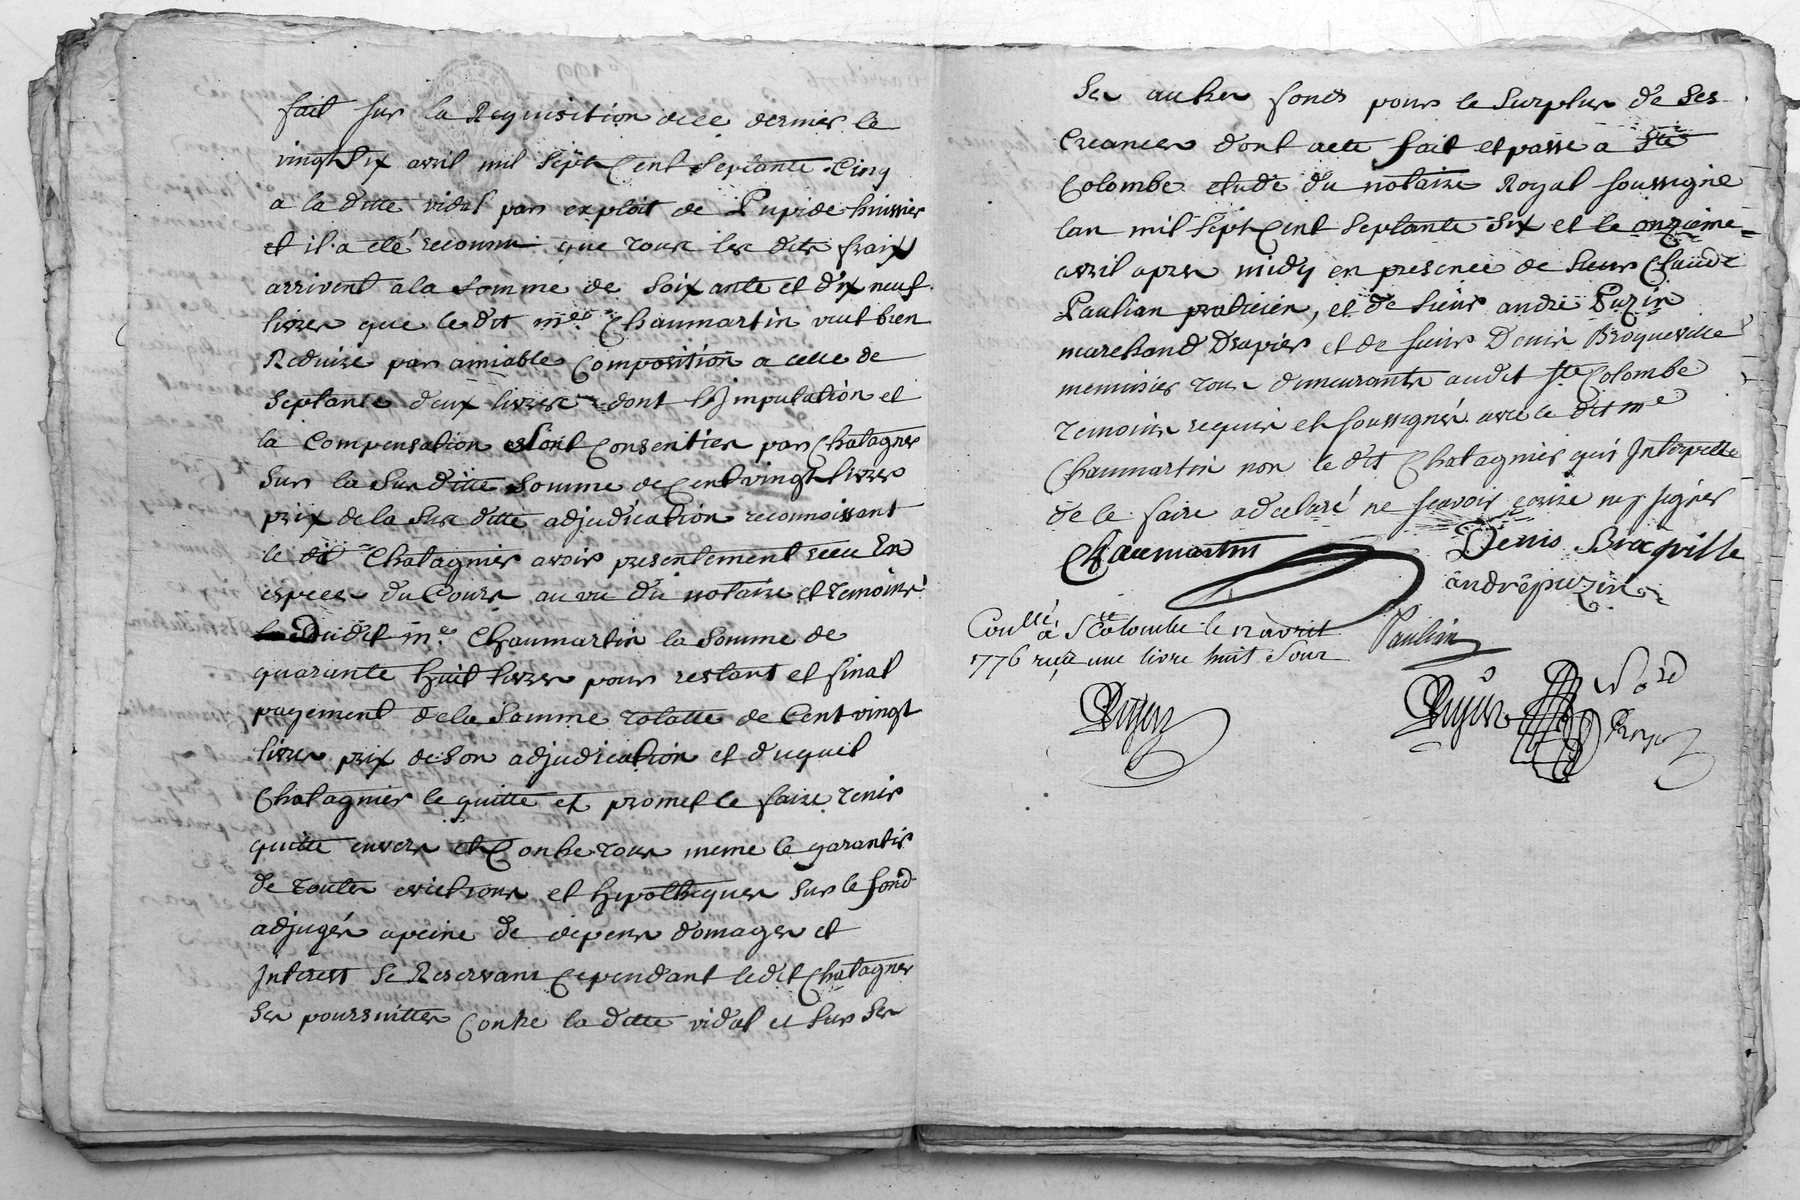 fait sur la Requisition de ce dernier le
vingt Six avril mil Sept Cent Septante Cinq
a la ditte vidal par exploit de Pupide huissier
et il a eté reconnu que tous les dits fraix
arrivent a la Somme de Soixante et dix neuf
livres que le dit me Chaumartin veut bien
Reduire par amiable Composition a celle de
Septante deux livres dont l'Jmputation et
la Compensation Sont Consenties par Chatagner
Sur la Sus ditte Somme de Cent vingt livres
prix de la Sus ditte adjudication reconnoissant
le dit Chatagnier avoir presentement recu En
especes du Cours au vu du notaire et temoins
Dudit me Chaumartin la Somme de
quarante huit livres pour restant et final
payement de la Somme totalle de Cent vingt
livres prix de Son adjudication et duquel
Chatagnier le quitte et promet le faire tenir
quitte envers et Contre tous meme le garantir
de toutes evictions et hipotheques Sur le fond
adjugés a peine de depens domages et
Interest Se Reservant Cependant ledit Chatagner
Ses poursuittes Contre la ditte vidal et Sur Ses
Ses autres fonds pour le Surplus de Ses
Creances dont acte fait et passé a Ste
Colombe etude du notaire Royal soussigné
lan mil Sept Cent Septante Six et le onzieme
avril apres midy en presence de Sieur Claude
Paulian praticien, et de Sieur andré Puzin
marchand Drapier et de sieur Denis Broqueville
menuisier tous demeurants audit Ste Colombe
temoins requis et soussignés avec le dit me
Chaumartin non le dit Chatagnier qui Interpellé
de le faire a declaré ne scavoir ecrire ny signer
Chaumartin
Denis Bracquille
andrépuzin
Coullé, a Ste Colombe le 12 avril
1776 reçu une livre huit Sous
Paulian